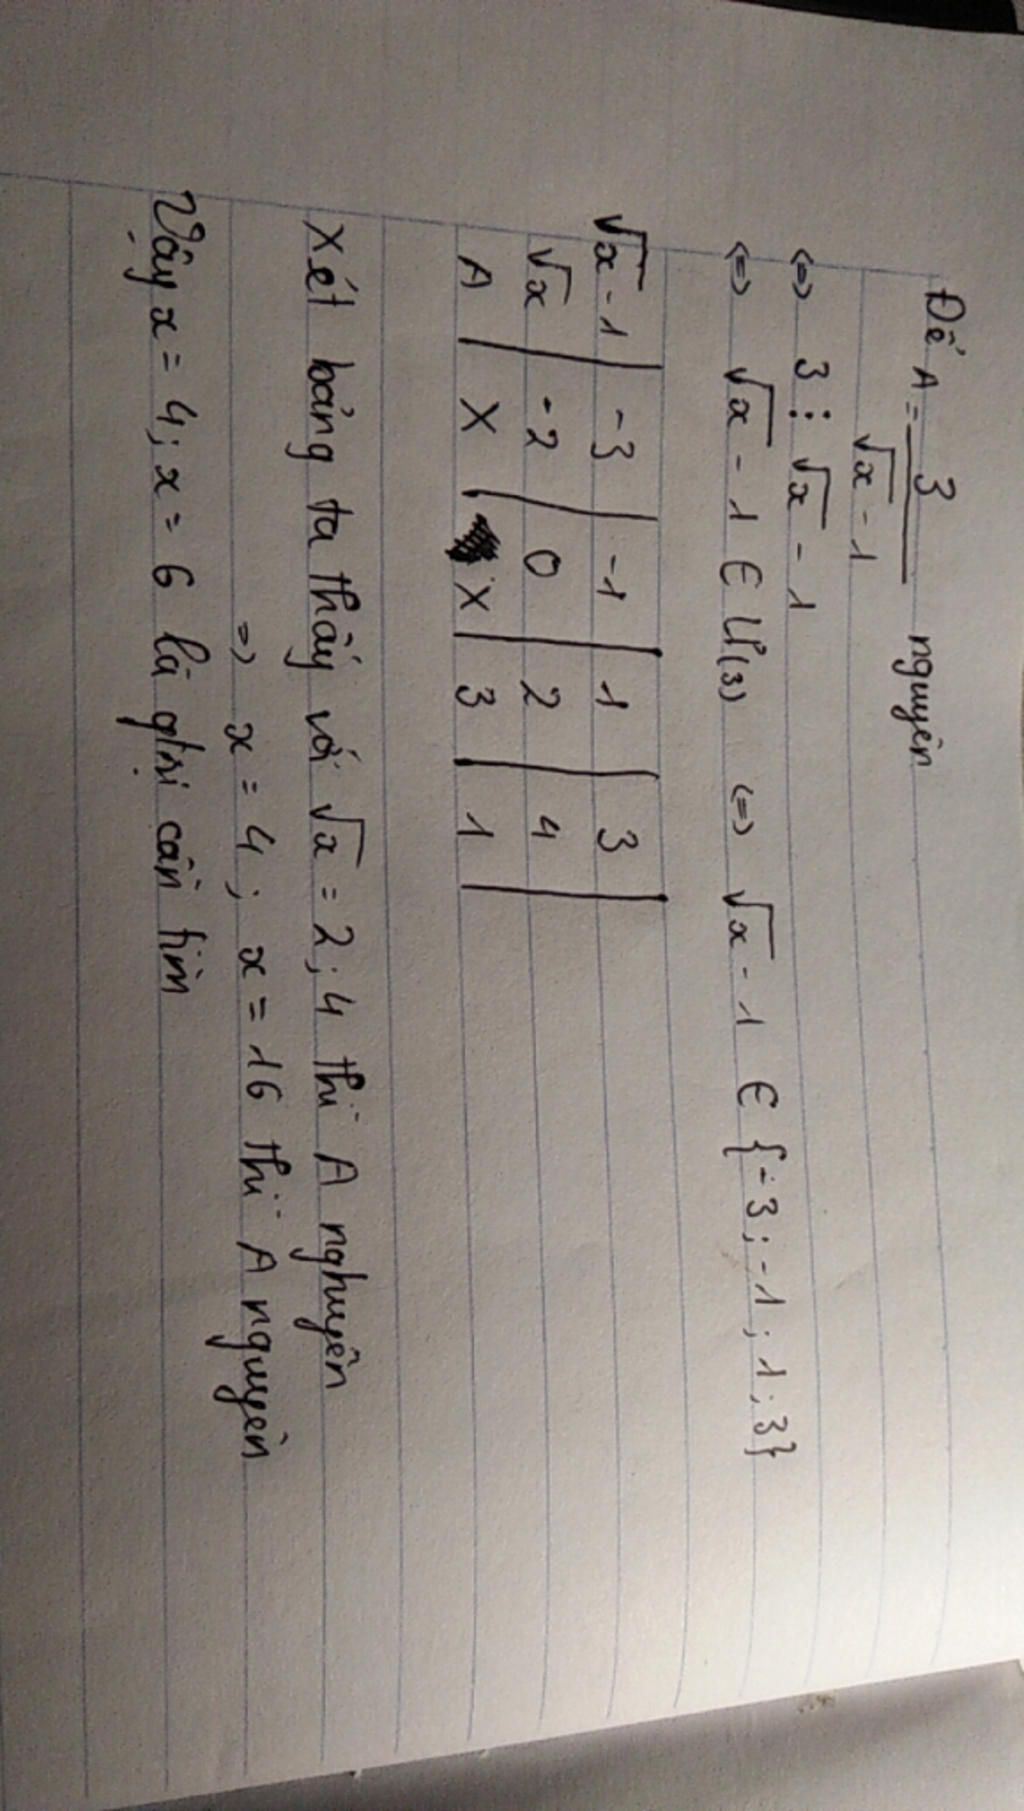 Để A = 3/(√x - 1) nguyên
<=> 3 ⋮ √x - 1
<=> √x - 1 ∈ Ư(3) <=> √x - 1 ∈ {-3; -1; 1; 3}
√x - 1 | -3 | -1 | 1 | 3 |
√x | -2 | 0 | 2 | 4 |
A | X | X | 3 | 1 |
Xét bảng ta thấy với √x = 2; 4 thì A nguyên
=> x = 4; x = 16 thì A nguyên
Vậy x = 4; x = 6 là gtrị cần tìm